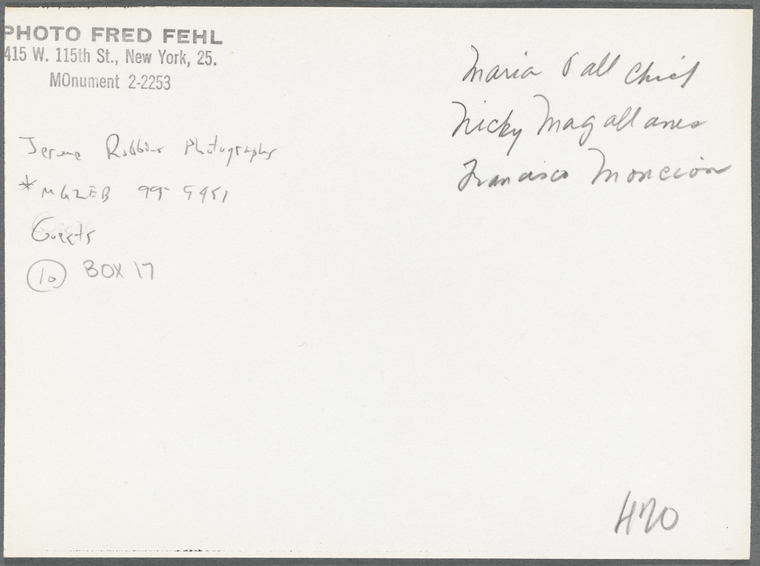 PHOTO FRED FEHL
415 W. 115th St., New York, 25.
MOnument 2-2253
Maria Tall Chief
Nicky Magallanes
Francisco Moncion
Jerome Robbins Photographs
*MGZEB 99-5951
Guests
10 BOX 17
470